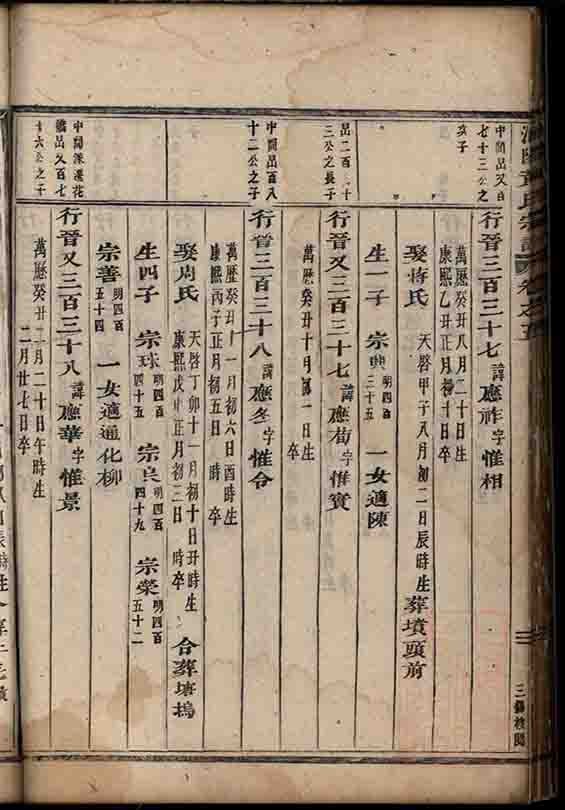 中閶品又百
七十三公之
孩子
行晉三百三十七諱應祚字惟相
萬曆癸丑八月二十日生
康熙乙丑正月初十日卒
娶蔣氏 天啓甲子八月初二日辰時生 葬墳頭前
生一子 宗典明四百三十五 一女適陳
品二百三十
三公之長子
行晉又三百三十七諱應荀字惟實
萬曆癸丑十月初一日生
卒
中閶品百八
十二公之子
行晉三百三十八諱應冬字惟令
萬曆癸丑十一月初六日酉時生
康熙丙子正月初五日 時卒
娶周氏 天啓丁卯十一月初十日丑時生
康熙戊 正月初三日 時卒 合葬塘塢
生四子 宗球明四百四十五 宗良明四百四十九 宗榮明四百五十二
宗善明四百五十四 一女適通化柳
中閶 蓮花
品又百七
十六公之子
行晉又三百三十八諱應華字惟景
萬曆癸丑 月二十日午時生
二月廿七日卒